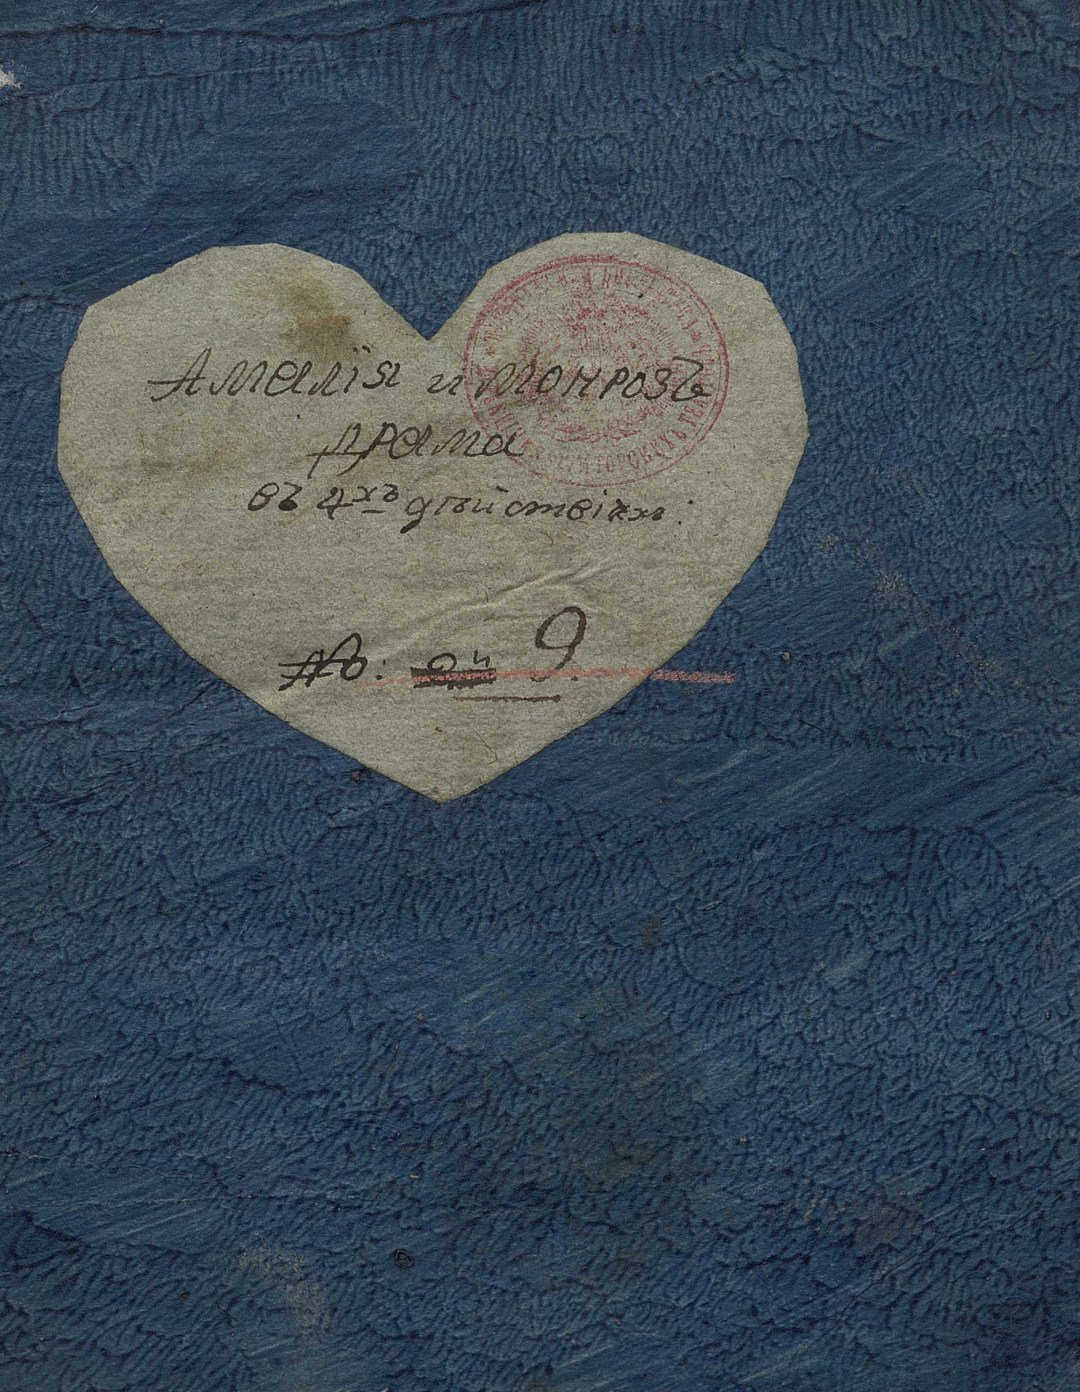 Амалія и Монрозъ
драма
въ 4хъ дѣйствіяхъ.
№: 9.
ИМПЕРАТОРСКИХЪ